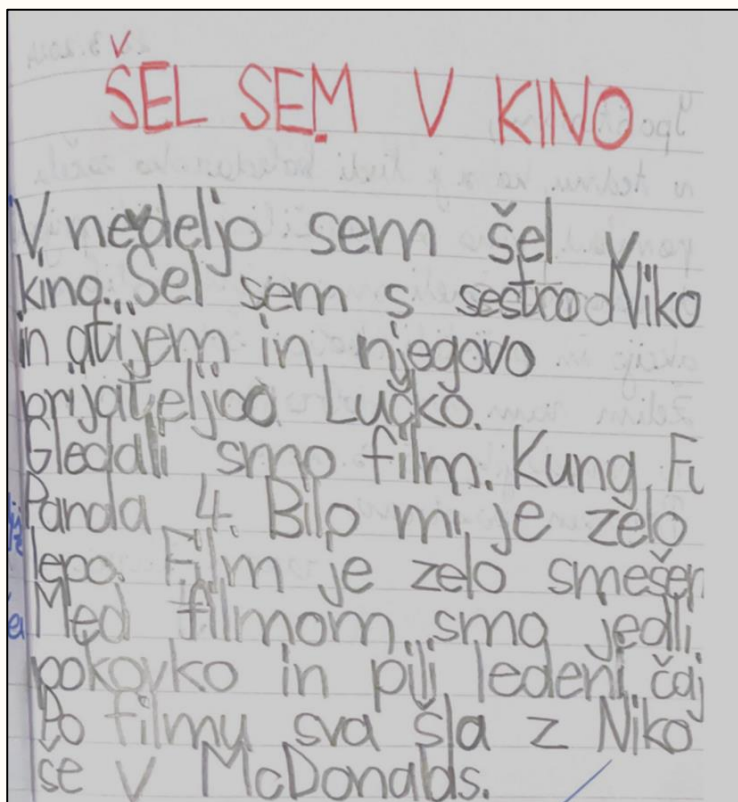 ŠEL SEM V KINO
V nedeljo sem šel v
kino. Šel sem s sestro Niko
in atijem in njegovo
prijateljico Lučko.
Gledali smo film. Kung Fu
Panda 4. Bilo mi je zelo
lepo. Film je zelo smešen
Med filmom smo jedli
pokovko in pili ledeni čaj
Po filmu sva šla z Niko
še v McDonalds.